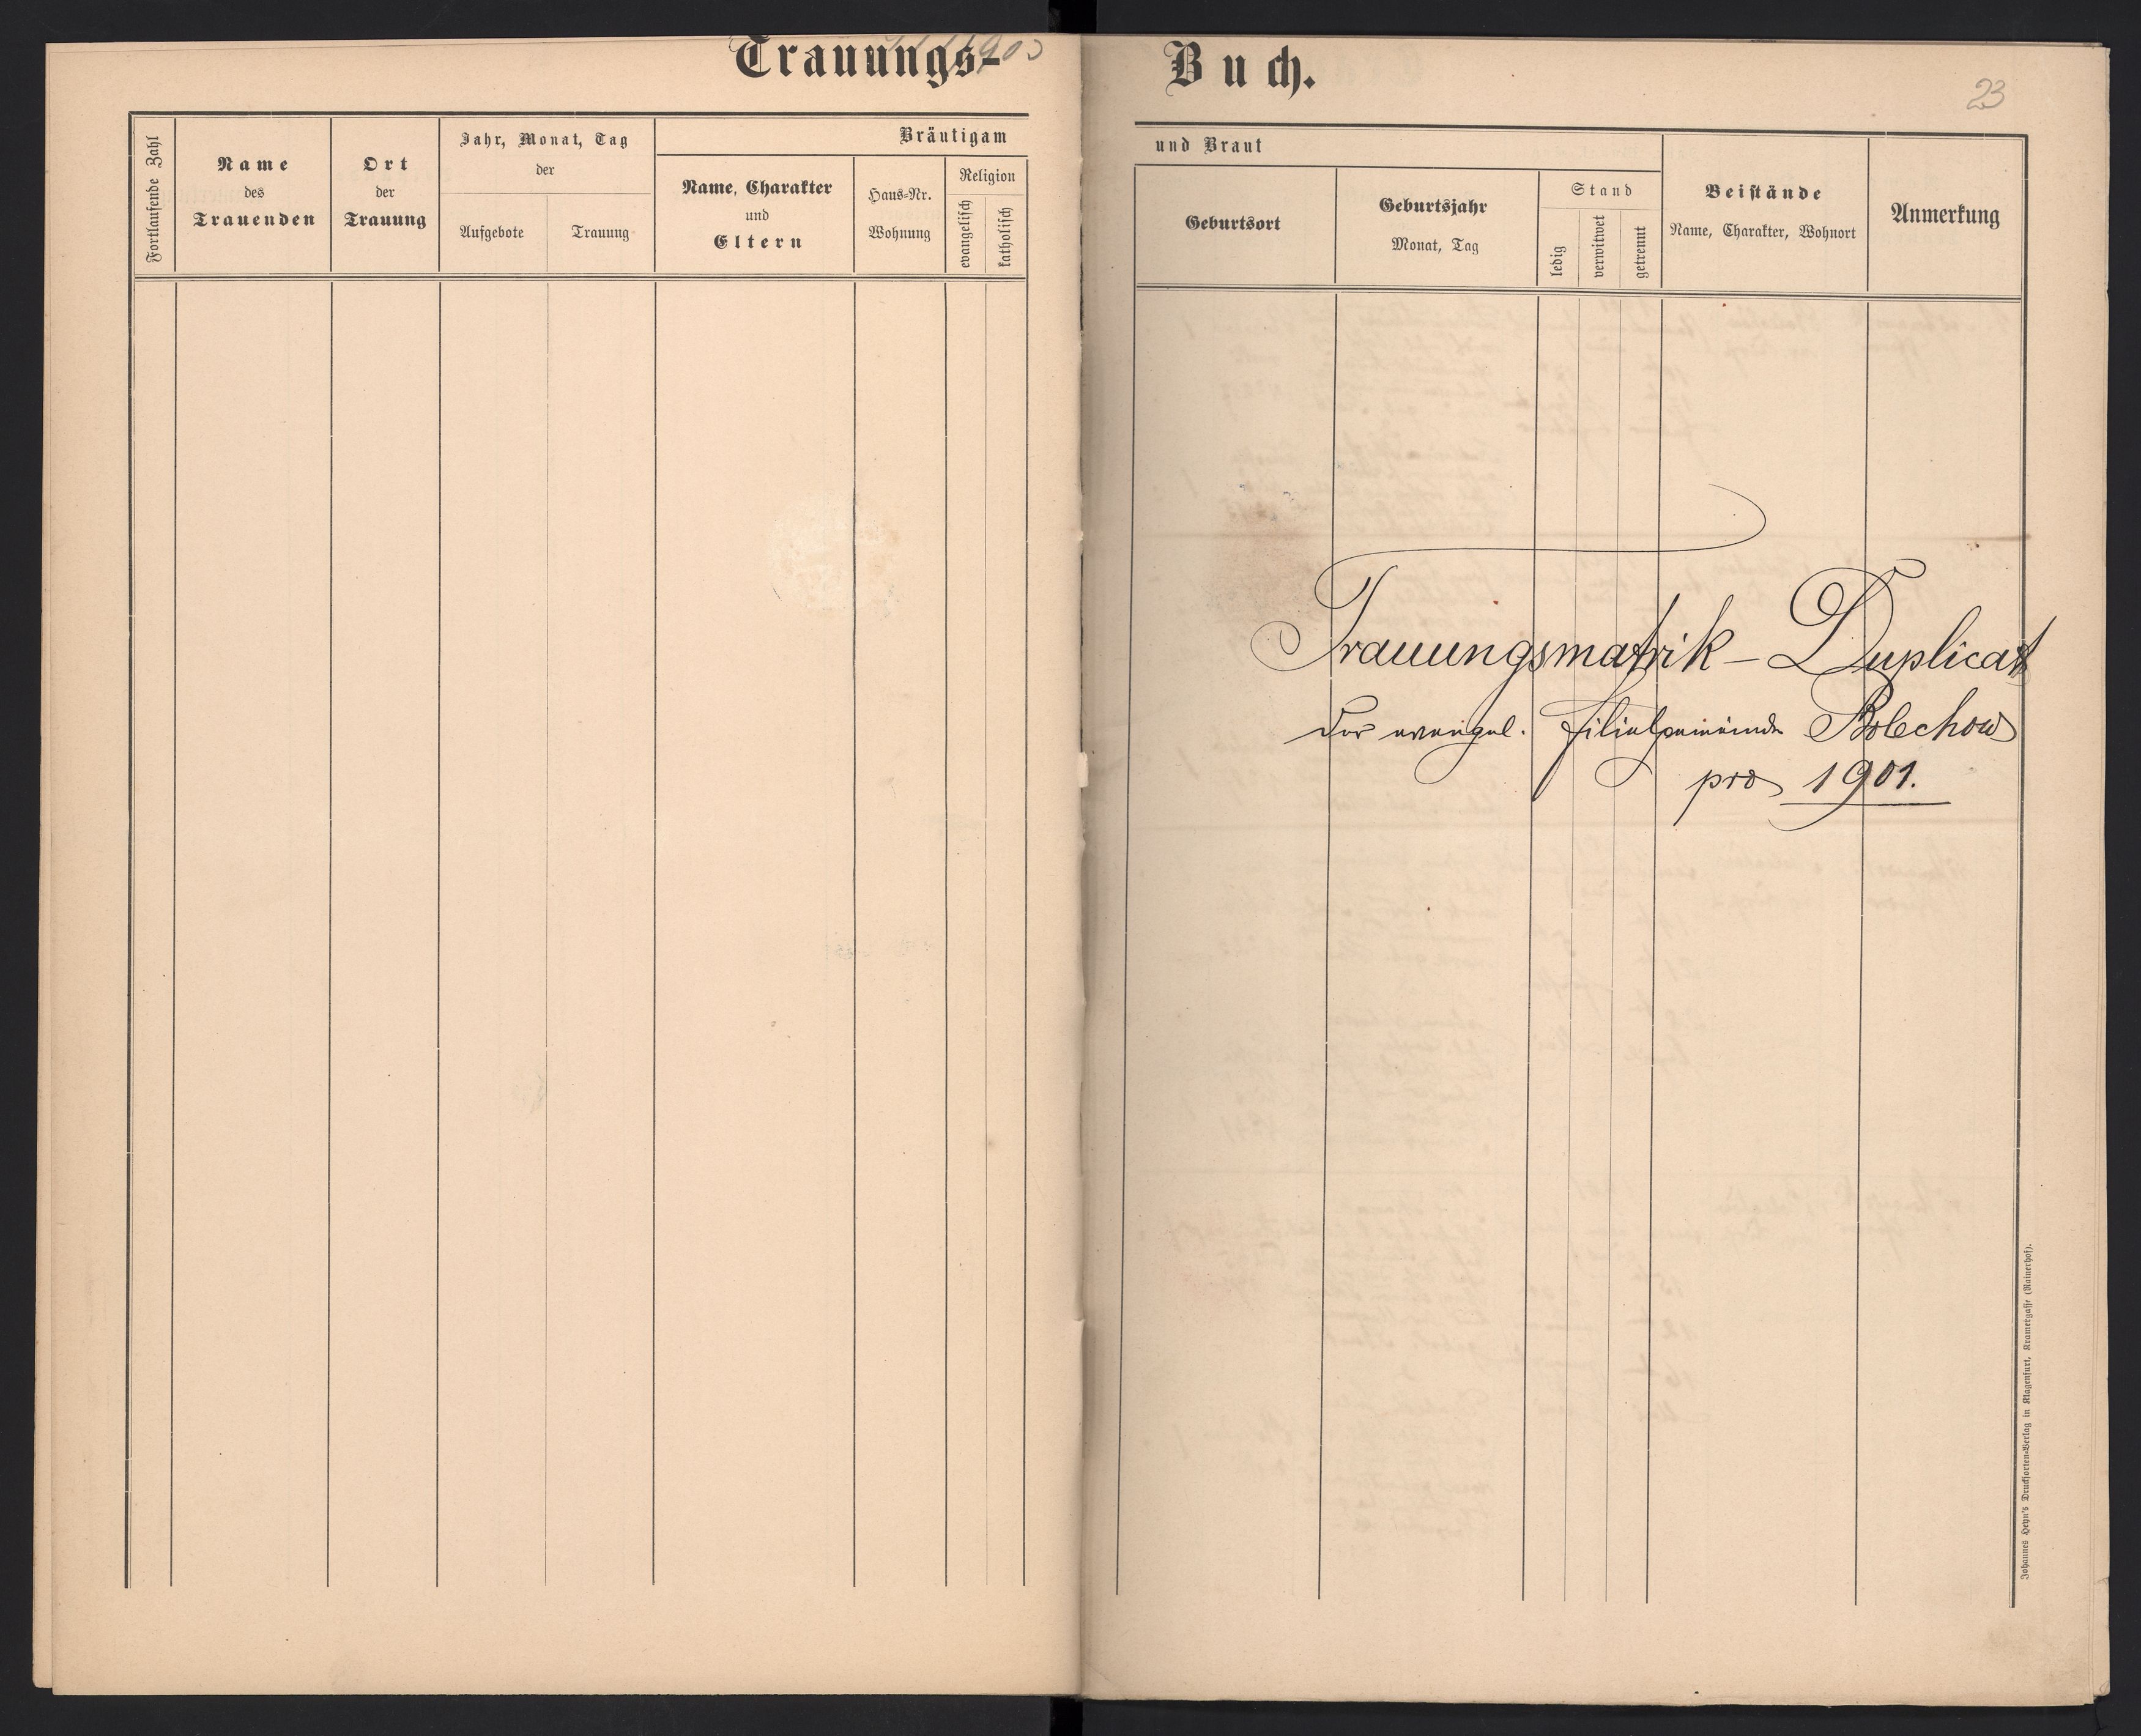 Trauungs-
Buch.
23
Fortlaufende Zahl
Name
des
Trauenden
Ort
der
Trauung
Jahr, Monat, Tag
der
Aufgebote
Trauung
Bräutigam
Name, Charakter
und
Eltern
Haus-Nr.
Wohnung
Religion
evangelisch
katholisch
und Braut
Geburtsort
Geburtsjahr
Monat, Tag
Stand
ledig
verwitwet
getrennt
Beistände
Name, Charakter, Wohnort
Anmerkung
Trauungsmatrik - Duplicat
der evangel. Filialgemeinde Bolechow
pro 1901.
Johannes Heyn's Drucksorten-Verlag in Klagenfurt, Kramergasse (Rainerhof).